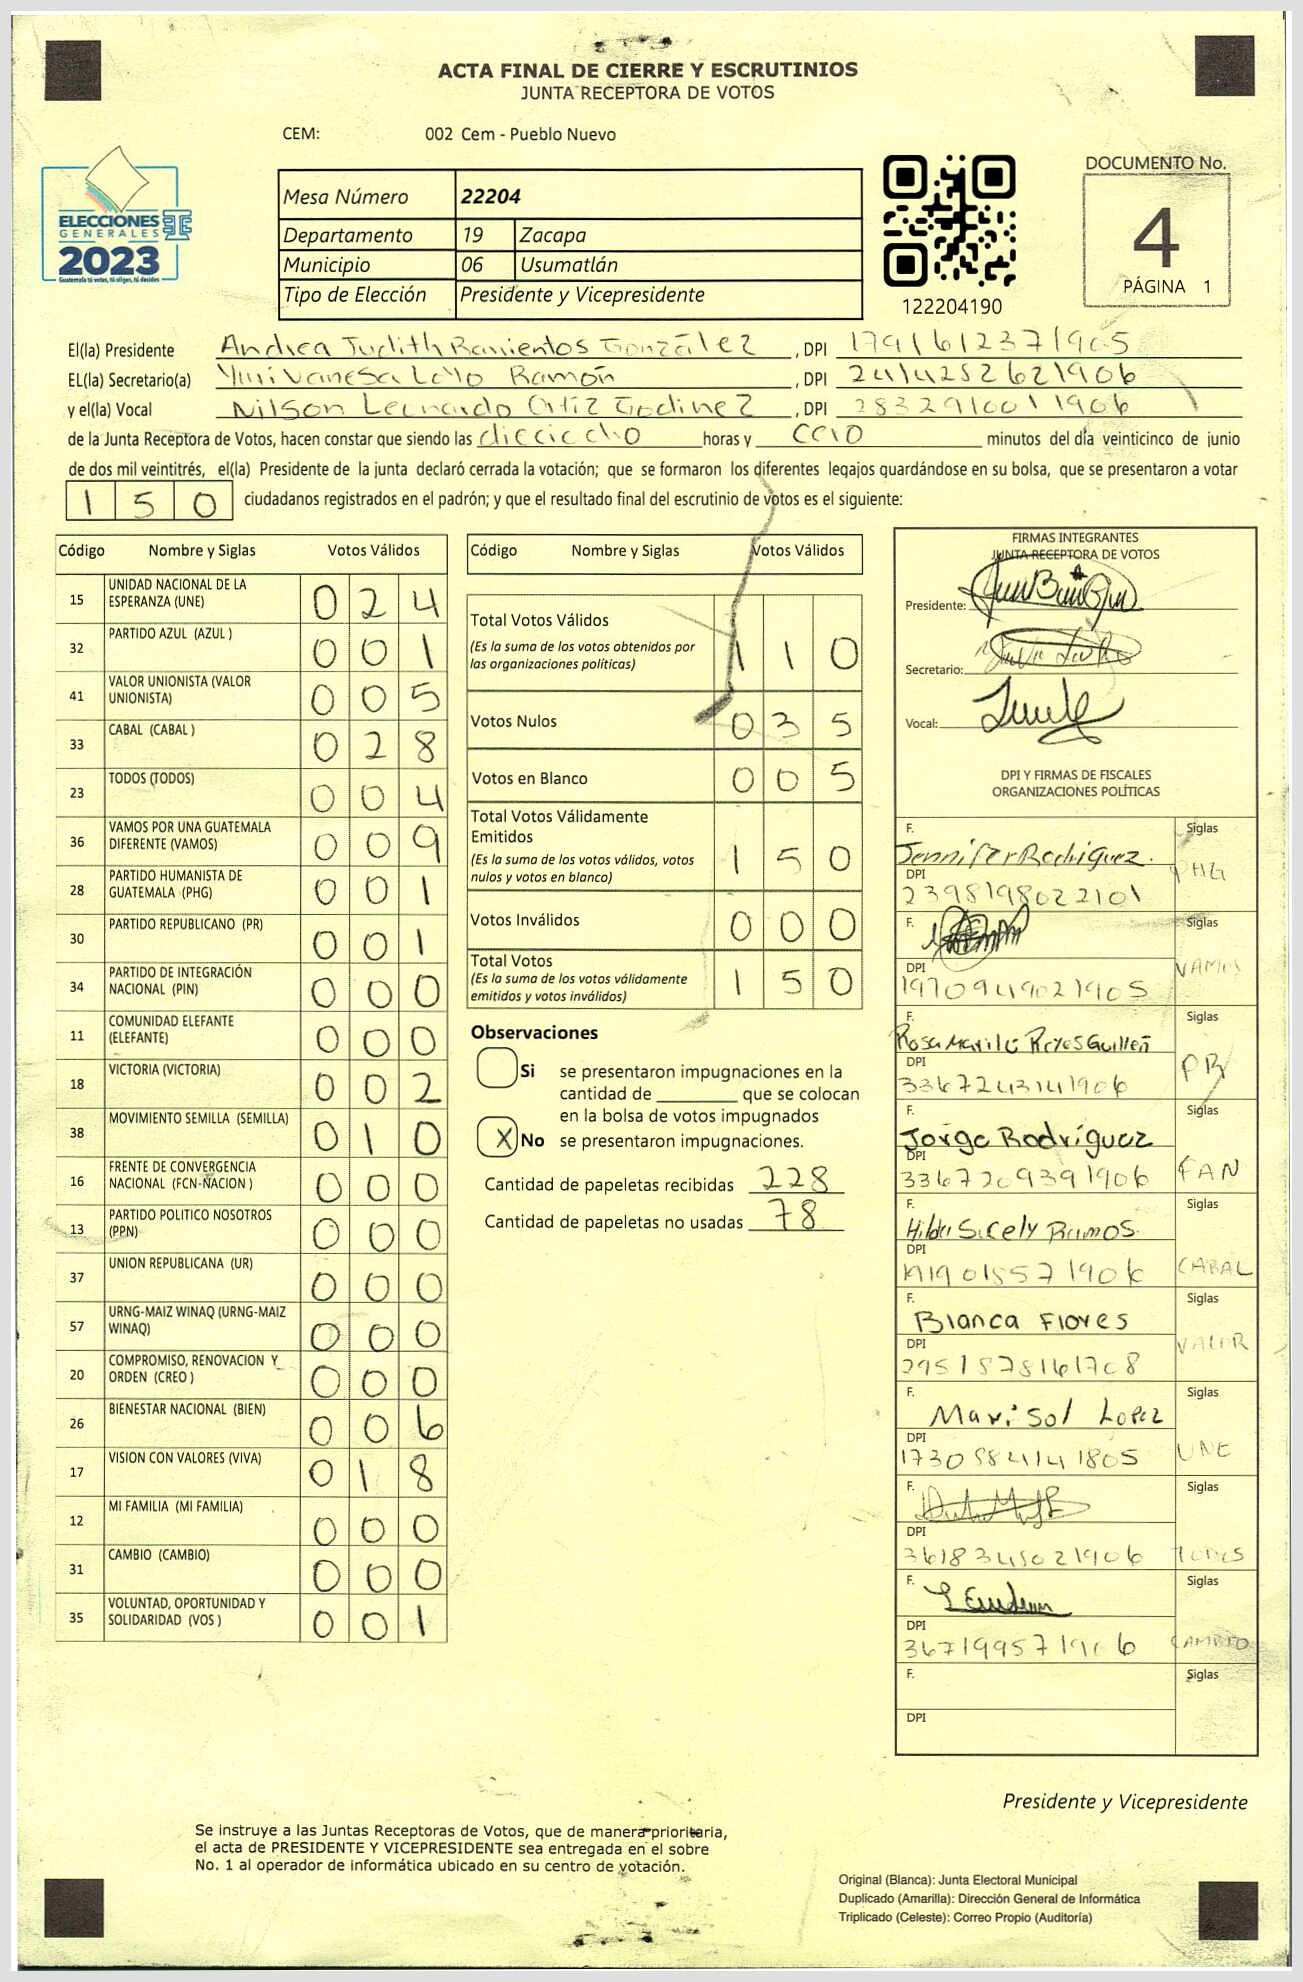 ACTA FINAL DE CIERRE Y ESCRUTINIOS
JUNTA RECEPTORA DE VOTOS
CEM: 002 Cem - Pueblo Nuevo
ELECCIONES
GENERALES
2023
Guatemala tú votas, tú eliges, tú decides
Mesa Número 22204
Departamento 19 Zacapa
Municipio 06 Usumatlán
Tipo de Elección Presidente y Vicepresidente
122204190
DOCUMENTO No.
4
PÁGINA 1
El(la) Presidente Andrea Judith Barrientos González, DPI 1791612371905
EL(la) Secretario(a) Yuri Vanesa Ramón, DPI
y el(la) Vocal Nilson Leonardo Ortiz Godinez, DPI 2832910011906
de la Junta Receptora de Votos, hacen constar que siendo las dieciocho horas y cero minutos del día veinticinco de junio
de dos mil veintitrés, el(la) Presidente de la junta declaró cerrada la votación; que se formaron los diferentes legajos guardándose en su bolsa, que se presentaron a votar
150 ciudadanos registrados en el padrón; y que el resultado final del escrutinio de votos es el siguiente:
Código Nombre y Siglas Votos Válidos
15 UNIDAD NACIONAL DE LA ESPERANZA (UNE) 024
32 PARTIDO AZUL (AZUL ) 001
41 VALOR UNIONISTA (VALOR UNIONISTA) 005
33 CABAL (CABAL ) 028
23 TODOS (TODOS) 004
36 VAMOS POR UNA GUATEMALA DIFERENTE (VAMOS) 009
28 PARTIDO HUMANISTA DE GUATEMALA (PHG) 001
30 PARTIDO REPUBLICANO (PR) 001
34 PARTIDO DE INTEGRACIÓN NACIONAL (PIN) 000
11 COMUNIDAD ELEFANTE (ELEFANTE) 000
18 VICTORIA (VICTORIA) 002
38 MOVIMIENTO SEMILLA (SEMILLA) 010
16 FRENTE DE CONVERGENCIA NACIONAL (FCN-NACION ) 000
13 PARTIDO POLITICO NOSOTROS (PPN) 000
37 UNION REPUBLICANA (UR) 000
57 URNG-MAIZ WINAQ (URNG-MAIZ WINAQ) 000
20 COMPROMISO, RENOVACION Y ORDEN (CREO ) 000
26 BIENESTAR NACIONAL (BIEN) 006
17 VISION CON VALORES (VIVA) 018
12 MI FAMILIA (MI FAMILIA) 000
31 CAMBIO (CAMBIO) 000
35 VOLUNTAD, OPORTUNIDAD Y SOLIDARIDAD (VOS ) 001
Código Nombre y Siglas Votos Válidos
Total Votos Válidos 110
(Es la suma de los votos obtenidos por
las organizaciones políticas)
Votos Nulos 035
Votos en Blanco 005
Total Votos Válidamente
Emitidos 150
(Es la suma de los votos válidos, votos
nulos y votos en blanco)
Votos Inválidos 000
Total Votos 150
(Es la suma de los votos válidamente
emitidos y votos inválidos)
Observaciones
Si se presentaron impugnaciones en la
cantidad de ________ que se colocan
en la bolsa de votos impugnados
X No se presentaron impugnaciones.
Cantidad de papeletas recibidas 228
Cantidad de papeletas no usadas 78
FIRMAS INTEGRANTES
JUNTA RECEPTORA DE VOTOS
Presidente:
Secretario:
Vocal:
DPI Y FIRMAS DE FISCALES
ORGANIZACIONES POLÍTICAS
F. Jennifer Rodriguez. Siglas PHG
DPI 2398198022101
F. Siglas VAMOS
DPI 1970949021905
F. Rosa Marilú Reyes Guillén Siglas PR
DPI 3367243141906
F. Jorge Rodríguez Siglas FAN
DPI 3367209391906
F. Hilda Sucely Ramos. Siglas CABAL
DPI
F. Blanca Flores Siglas VALOR
DPI 2951878161708
F. Marisol Lopez Siglas UNE
DPI
F. Siglas TODOS
DPI 3618345021906
F. Siglas CAMBIO
DPI
F. Siglas
DPI
Presidente y Vicepresidente
Se instruye a las Juntas Receptoras de Votos, que de manera prioritaria,
el acta de PRESIDENTE Y VICEPRESIDENTE sea entregada en el sobre
No. 1 al operador de informática ubicado en su centro de votación.
Original (Blanca): Junta Electoral Municipal
Duplicado (Amarilla): Dirección General de Informática
Triplicado (Celeste): Correo Propio (Auditoría)